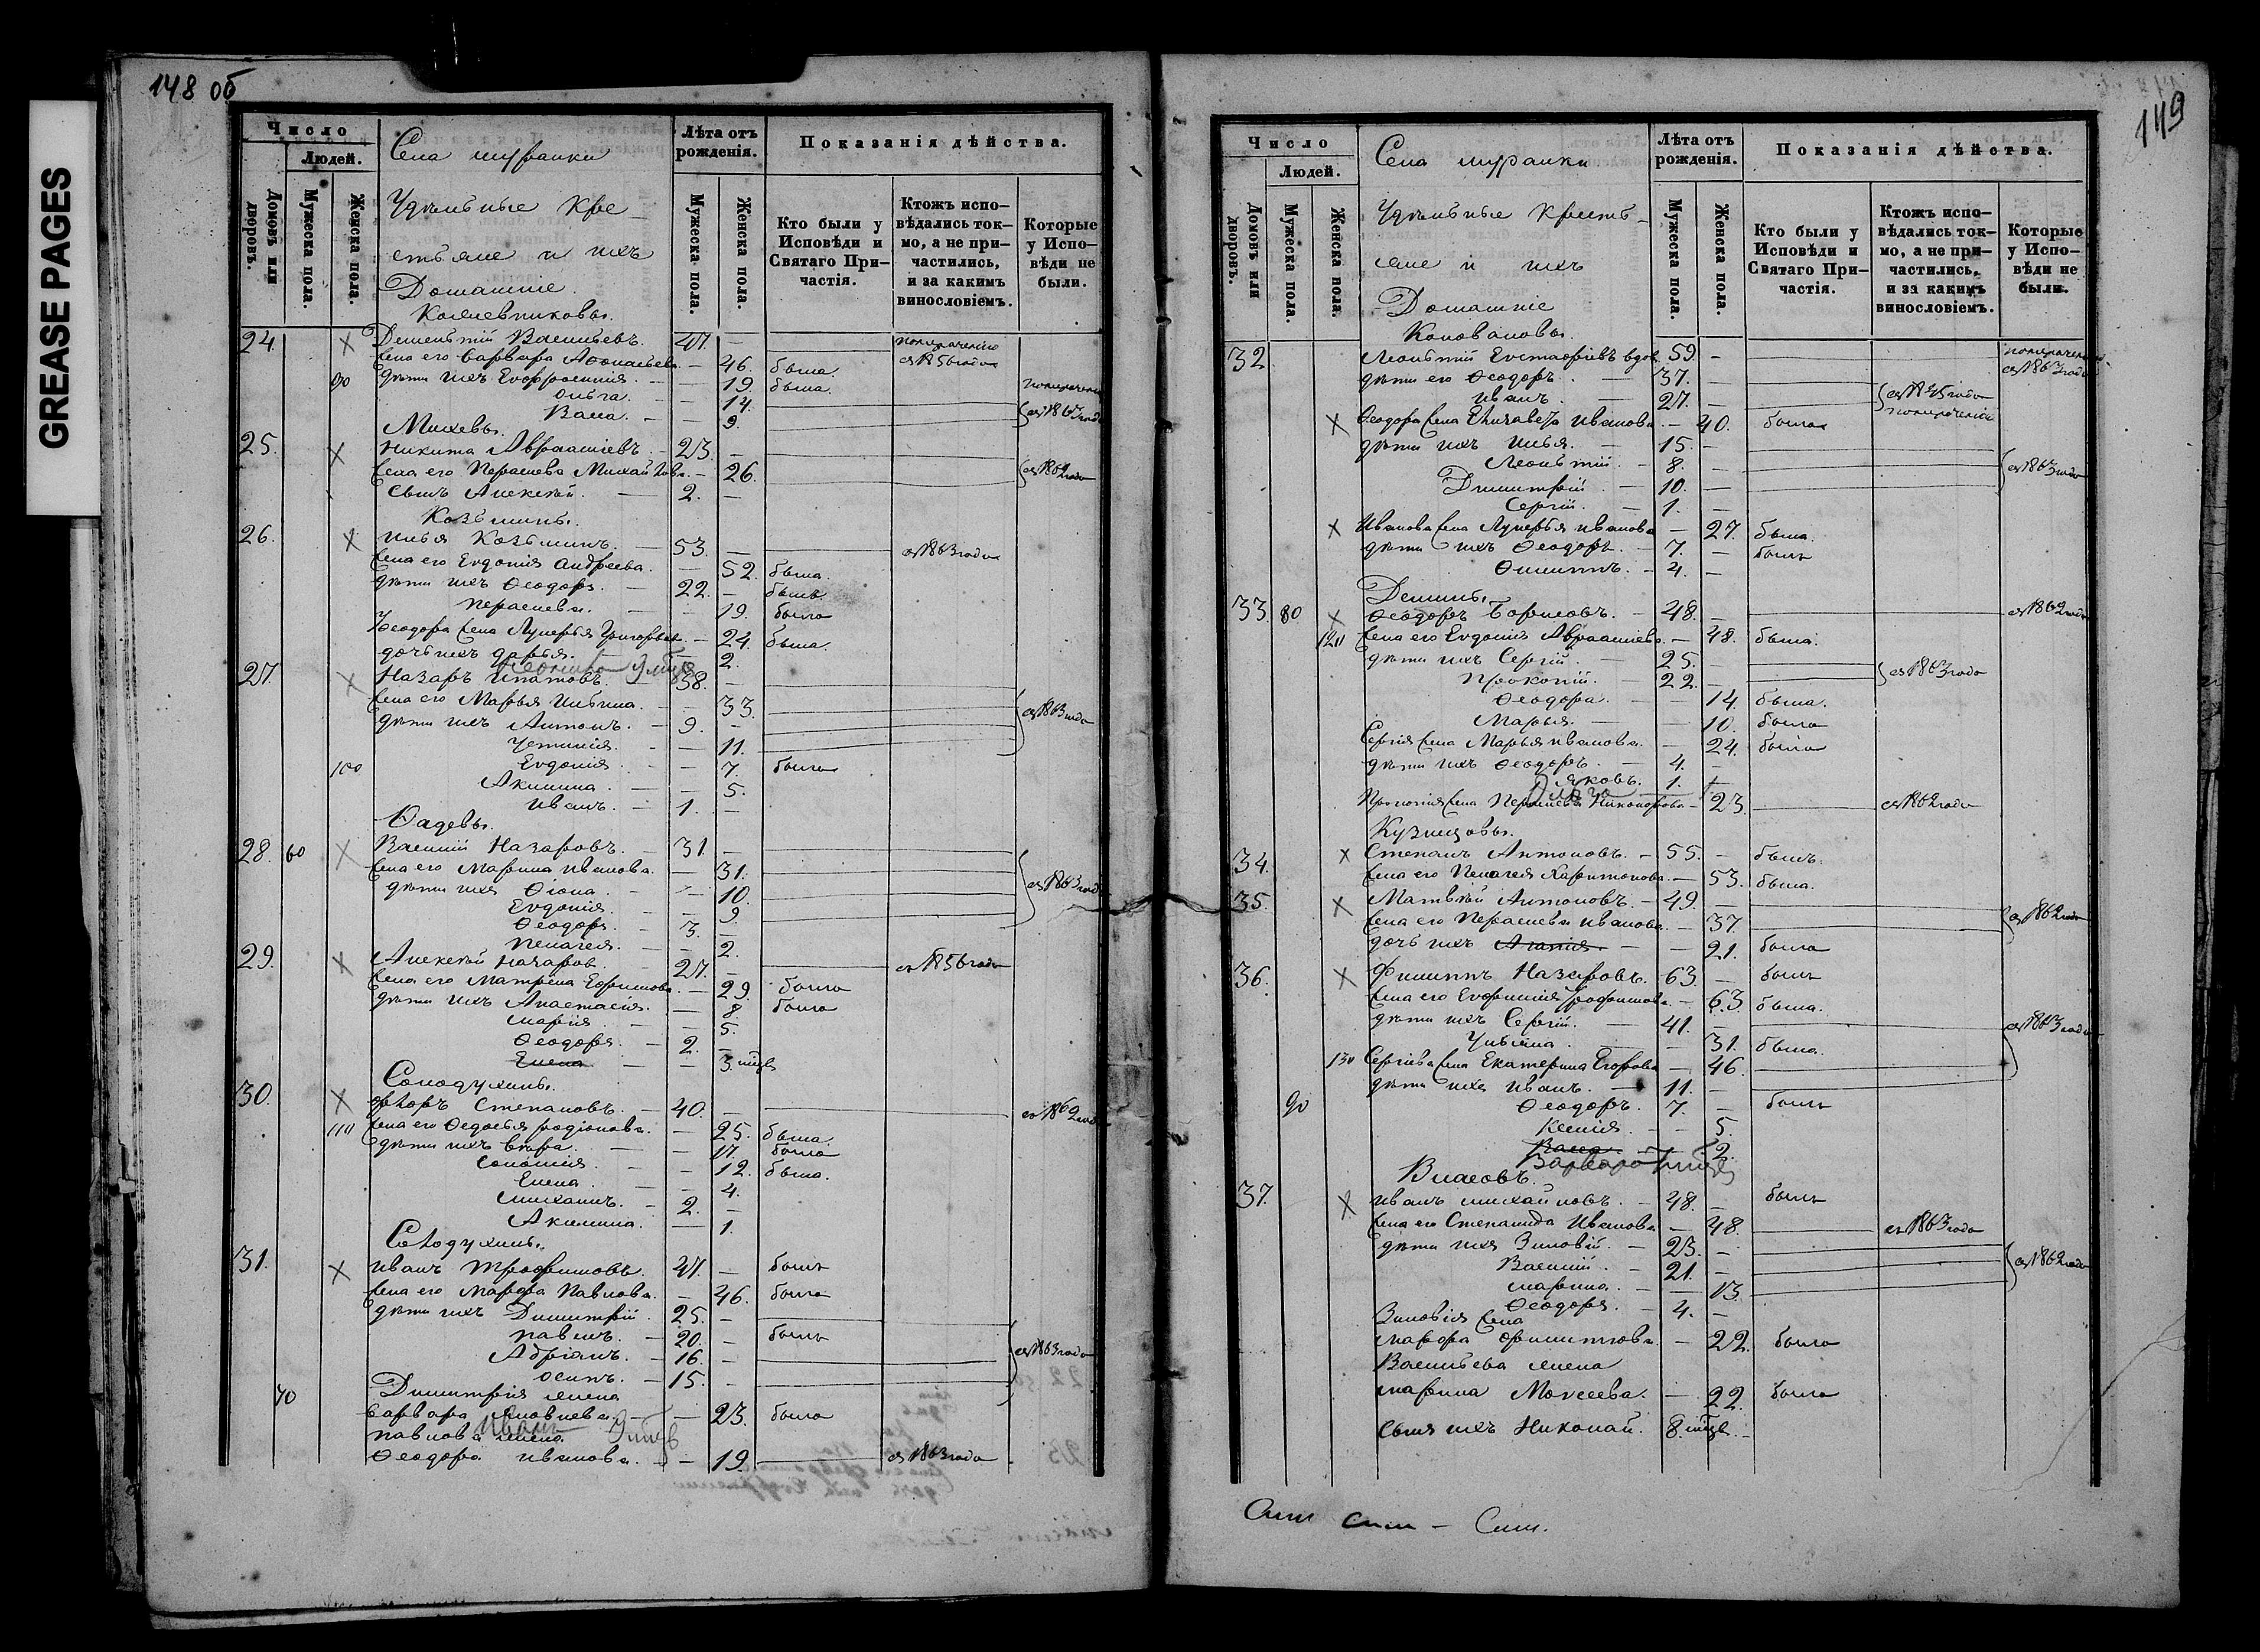 GREASE PAGES
148 об
Число
Людей.
Домовъ или дворовъ.
Мужеска пола.
Женска пола.
Села
Удѣльные кре-
стьяне и ихъ
Домашніе.
Лѣта отъ рожденія.
Мужеска пола.
Женска пола.
Показанія дѣйства.
Кто были у Исповѣди и Святаго Причастія.
Ктожъ исповѣдались токмо, а не причастились, и за какимъ винословіемъ.
Которые у Исповѣди не были.
24. Дементій Васильевъ. 47. —
жена его Варвара — 46. была.
90 дѣти ихъ Евфросинія. — 19. была.
Ольга. — 14.
Васса. — 9
Михевы.
25. Никита Авраамiевъ. 23. —
жена его Параскева Михайлова — 26. съ 1862 года
сынъ Алексѣй. 2. —
Козьмины.
26. Илья Козьминъ. 53. — съ 1863 года
жена его Евдокія Андреева. — 52. была.
дѣти ихъ Ѳеодоръ. 22. — былъ
Параскева. — 19. была
Ѳеодора жена Лукерья Григорьева — 24. была.
дочь ихъ Дарья. — 2.
27. Назаръ Ипатовъ. 38. —
жена его Марья Ильина. — 33. съ 1863 года
дѣти ихъ Антонъ. 9. —
Устинія. — 11.
100 Евдокія. — 7. была
Акилина. — 5.
Иванъ. 1. —
Ѳадевы.
28. 60 Василій Назаровъ. 31. —
жена его Марина Иванова. — 31. съ 1863 года
дѣти ихъ Ѳіона. — 10.
Евдокія. — 9.
Ѳеодоръ. 3. —
Пелагея. — 2.
29. Алексѣй Назаровъ. 27. — съ 1856 года
жена его Матрена Ефимова — 29. была
дѣти ихъ Анастасія. — 8. была
Марія — 5.
Ѳеодоръ. 2. —
Елена — 3 мѣсц
Солодухины.
30. Ѳедоръ Степановъ. 40. — съ 1862 года
110 жена его Ѳедосья Родіонова. — 25. была.
дѣти ихъ Вѣра. — 17. была
Соломія. — 12. была.
Елена. — 4.
Михаилъ. 2. —
Акилина. — 1.
Солодухины.
31. Иванъ Трофимовъ. 47. — былъ
жена его Марфа Павлова. — 46. была
дѣти ихъ Димитрій. 25. —
Павелъ. 20. — былъ
Адріанъ. 16. — съ 1863 года
Осипъ. 15. —
70 Димитрія жена
Варвара Яковлева. — 23. была
Иванъ
Павлова жена
Ѳеодора Иванова. — 19. съ 1863 года
149
Число
Людей.
Домовъ или дворовъ.
Мужеска пола.
Женска пола.
Села
Удѣльные кресть-
яне и ихъ
Домашніе
Лѣта отъ рожденія.
Мужеска пола.
Женска пола.
Показанія дѣйства.
Кто были у Исповѣди и Святаго Причастія.
Ктожъ исповѣдались токмо, а не причастились, и за какимъ винословіемъ.
Которые у Исповѣди не были.
Коноваловы.
32. Леонтій Евстафіевъ вдов. 59. — съ 1863 года
дѣти его Ѳеодоръ. 37. —
Иванъ. 27. —
Ѳеодора жена Елизавета Иванова — 40. была
дѣти ихъ Илья. 15. —
Леонтій. 8. — съ 1863 года
Димитрій. 10. —
Сергій. 1. —
Иванова жена Лукерья Иванова — 27. была.
дѣти ихъ Ѳеодоръ. 7. — былъ
Филиппъ. 4. —
Демины.
33. 80 Ѳеодоръ Борисовъ. 48. — съ 1862 года
120 жена его Евдокія Авраамiева. — 48. была.
дѣти ихъ Сергій. 25. —
Прокопій. 22. — съ 1863 года
Ѳеодора. — 14. была.
Марья. — 10. была
Сергія жена Марья Иванова. — 24. была
дѣти ихъ Ѳеодоръ. 4. —
Яковъ. 1. —
Прокопія жена Параскева Никонорова — 23. съ 1862 года
Кузнецовы.
34. Степанъ Антоновъ. 55. — былъ.
жена его Пелагея Харитонова. — 53. была.
35. Матвѣй Антоновъ. 49. —
жена его Параскева Иванова. — 37. съ 1862 года
дочь ихъ Агапія. — 21. была
36. Филиппъ Назаровъ. 63. — былъ
жена его Евфимія Трофимова. — 63. была.
дѣти ихъ Сергій. 41. — съ 1863 года
Ульяна. — 31. была.
130 Сергіева жена Екатерина Егорова — 46.
дѣти ихъ Иванъ. 11. —
90 Ѳеодоръ. 7. — былъ
Ксенія. — 5.
Васса. — 2.
Варвара
Власовъ.
37. Иванъ Михайловъ. 48. — былъ
жена его Степанида Иванова — 48. съ 1863 года
дѣти ихъ Зиновій. 23. —
Василій. 21. — съ 1862 года
Марина. — 13.
Ѳеодоръ. 4. —
Зиновія жена
Марфа Филиппова. — 22. была
Васильева жена
Марина Моисеева. — 22. была
сынъ ихъ Николай. 8 мѣсц. —